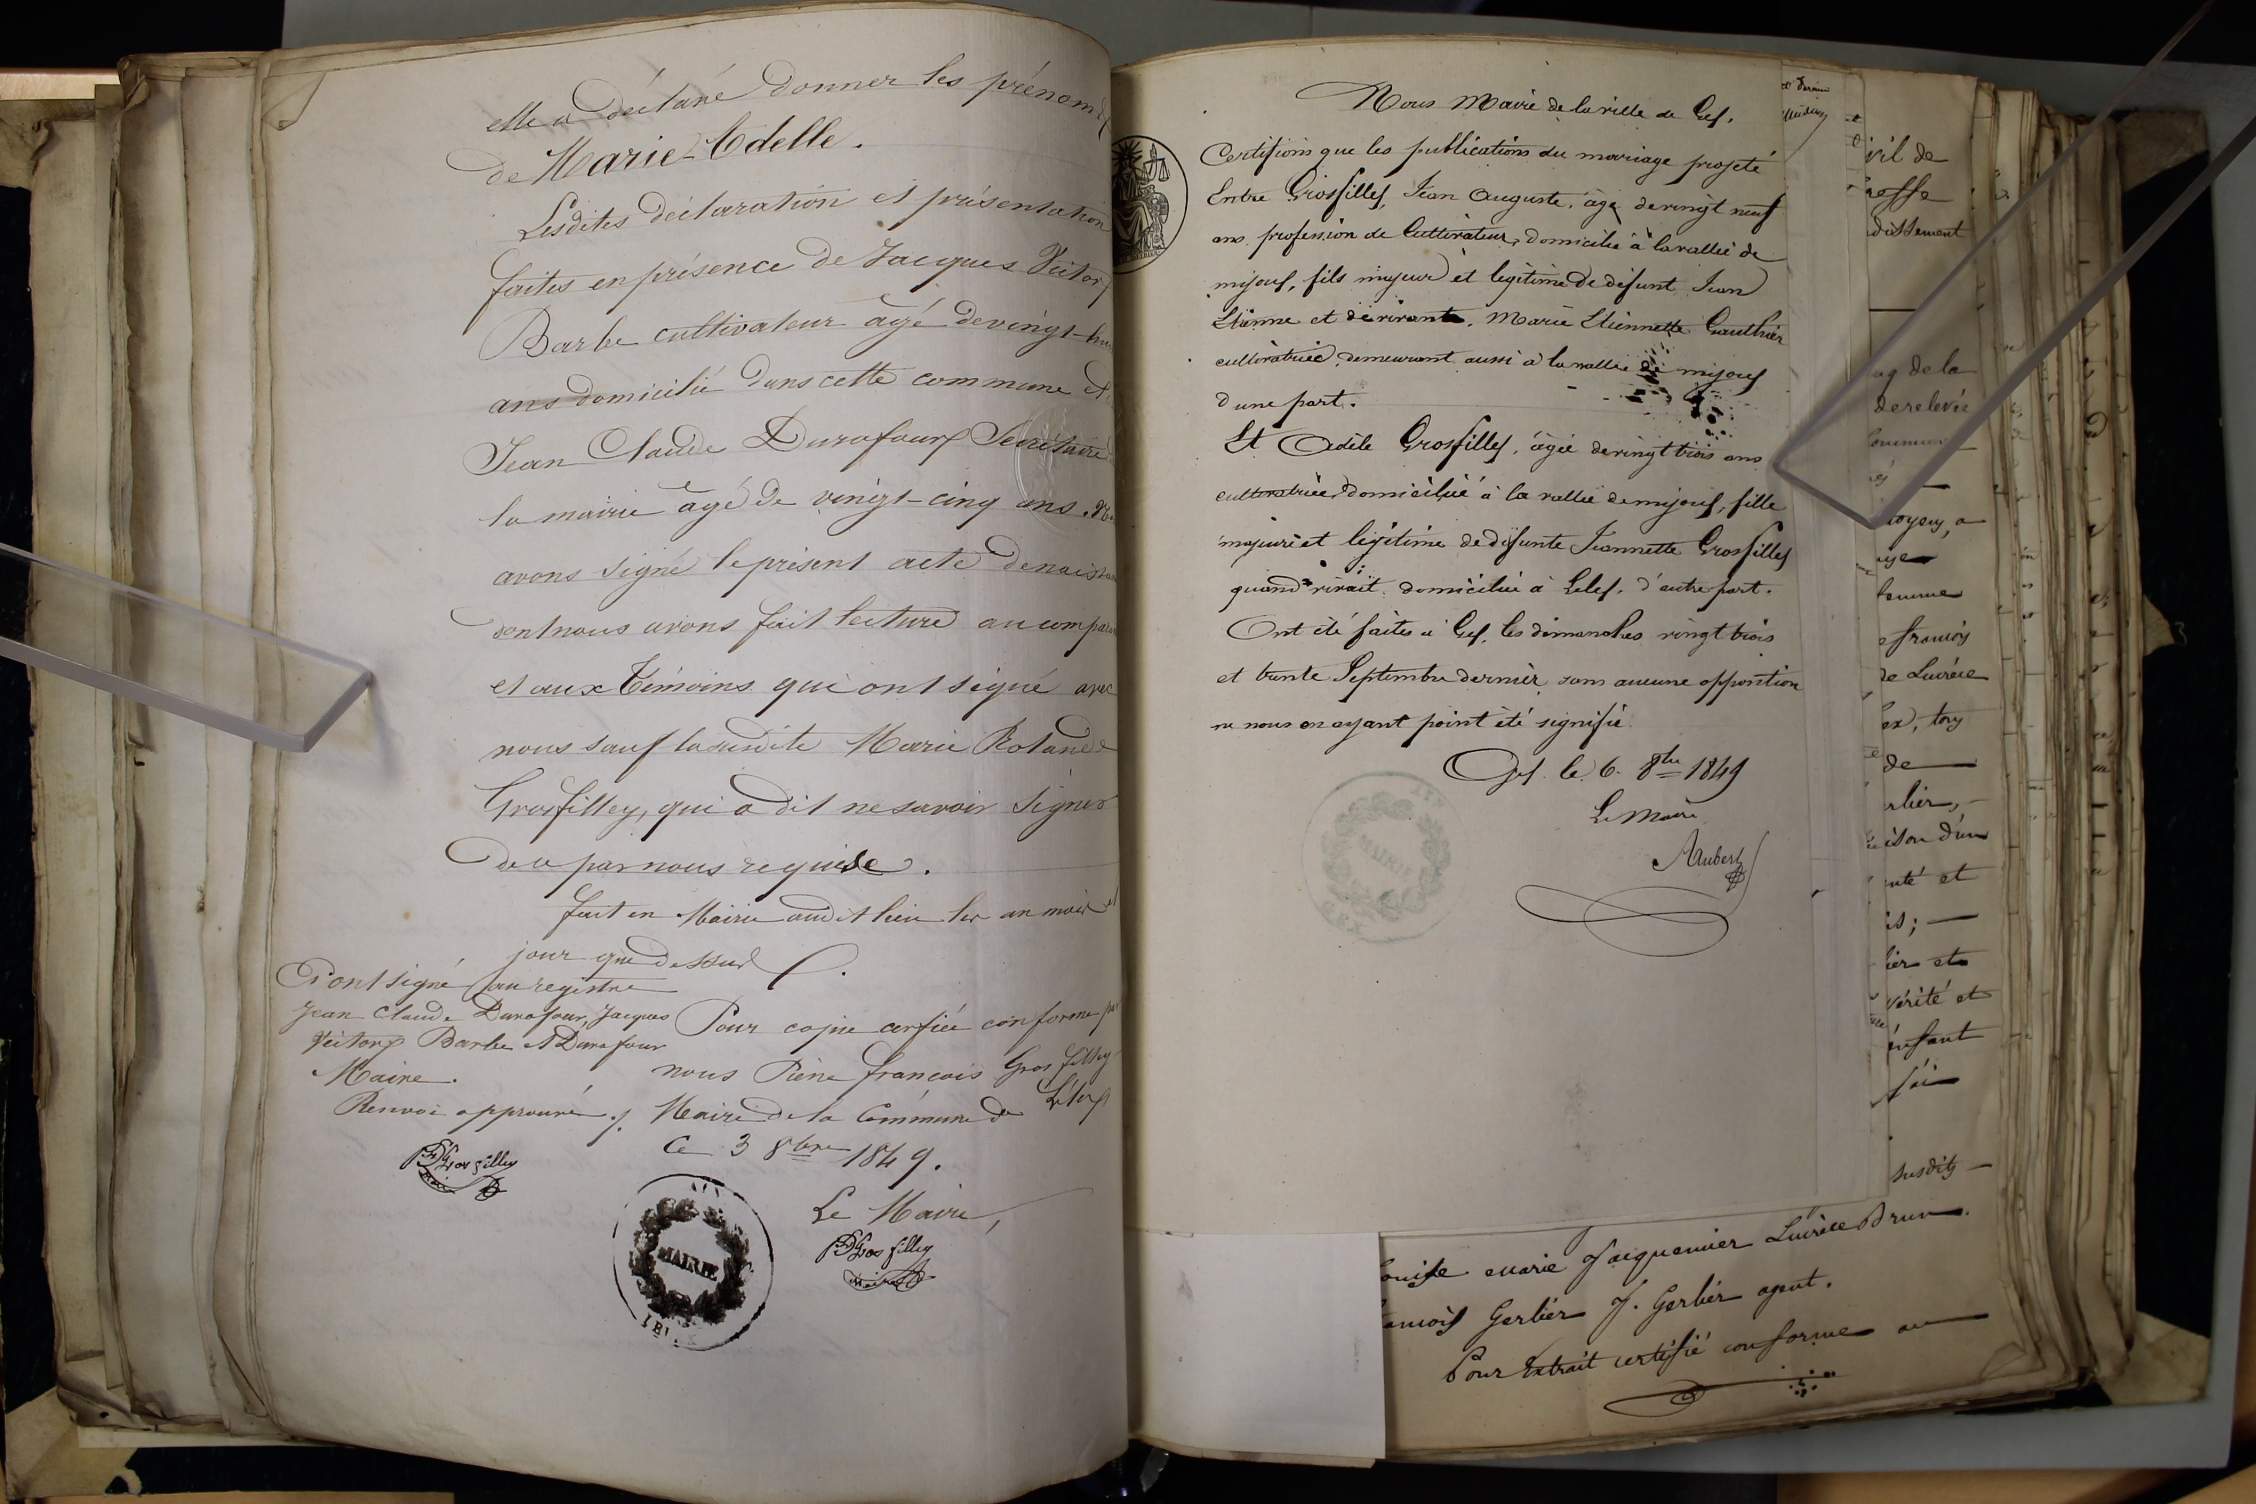 elle a déclaré donner les prénoms
de Marie-Adelle.
Lesdites déclaration et présentation
faites en présence de Jacques Victor
Barbe cultivateur âgé de vingt-hui
ans domicilié dans cette commune et
Jean Claude Durafour Secrétaire
la mairie âgé de vingt-cinq ans. N
avons signé le présent acte de naissan
dont nous avons fait lecture au compar
et aux témoins qui ont signé avec
nous sauf la susdite Marie Rolande
Grosfilley, qui a dit ne savoir signer
de ce par nous requise.
fait en Mairie audit lieu les an mois et
jour que dessus
ont signé au registre
Jean Claude Durafour, Jacques
Victor Barbe et Durafour
Maire.
Renvoi approuvé
Grosfilley
Maire
Pour copie cerfiée conforme par
nous Réne françois Grosfilley
Maire de la Commune de Lélex
Ce 3 8bre 1849.
Le Maire,
Gros filley
Maire
MAIRIE
Nous Maire de la ville de Gex.
Certifions que les publications du mariage projeté
Entre Grosfilley, Jean Auguste, âgé de vingt neuf
ans profession de Cultivateur, domicilié à la vallée de
mijoux, fils majeur et legitime de défunt Jean
Etienne et de vivante Marie Etiennette Gauthier
cultivatrice, demeurant aussi a la vallée de mijoux
d'une part.
Et Adèle Grosfilley, âgée de vingt trois ans
cultivatrice, domiciliée à la vallée de mijoux, fille
majeure et légitime de défunte Jeannette Grosfilley
quand vivait domiciliée à Lelex, d'autre part.
Ont été faites à Gex, les dimanches vingt trois
et trente Septembre dernier sans aucune opposition
ne nous en ayant point été signifié
Gex le 6 8bre 1849
Le Maire
Aubert
MAIRIE
ivil de
Greffe
de la
de relevée
femme
françois
de Lucrèce
de
et
ier et
vérité et
enfant
susdits
Louise Marie Jacquemier Lucrèce Brun.
Gerbier J. Gerbier agent.
Pour Extrait certifié conforme au